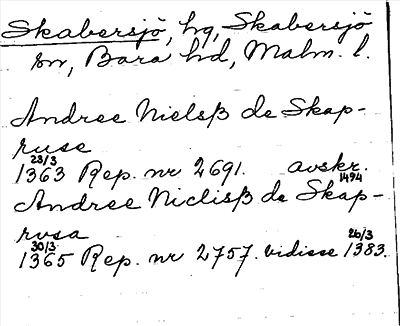 Skabersjö, hg, Skabersjö
sn, Bara hd, Malm. l.
Andree Nielsß de Skap-
ruse
23/3
1363 Rep. nr 2691. avskr. 1494
Andree Niclisß de Skap-
rvsa
30/3 26/3
1365 Rep. nr 2757. vidisse 1383.